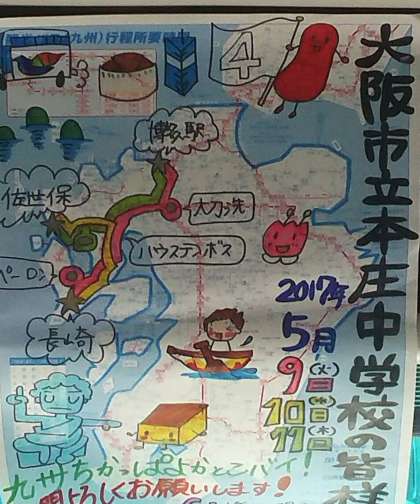 九州)行程所要
4
大阪市立本庄中学校の皆様
博多駅
佐世保
大刀洗
ハウステンボス
ペーロン
長崎
2017年
5月
9日(火)
10日(水)
11日(木)
九州ちかっぱよかとこバイ!
よろしくお願いします!